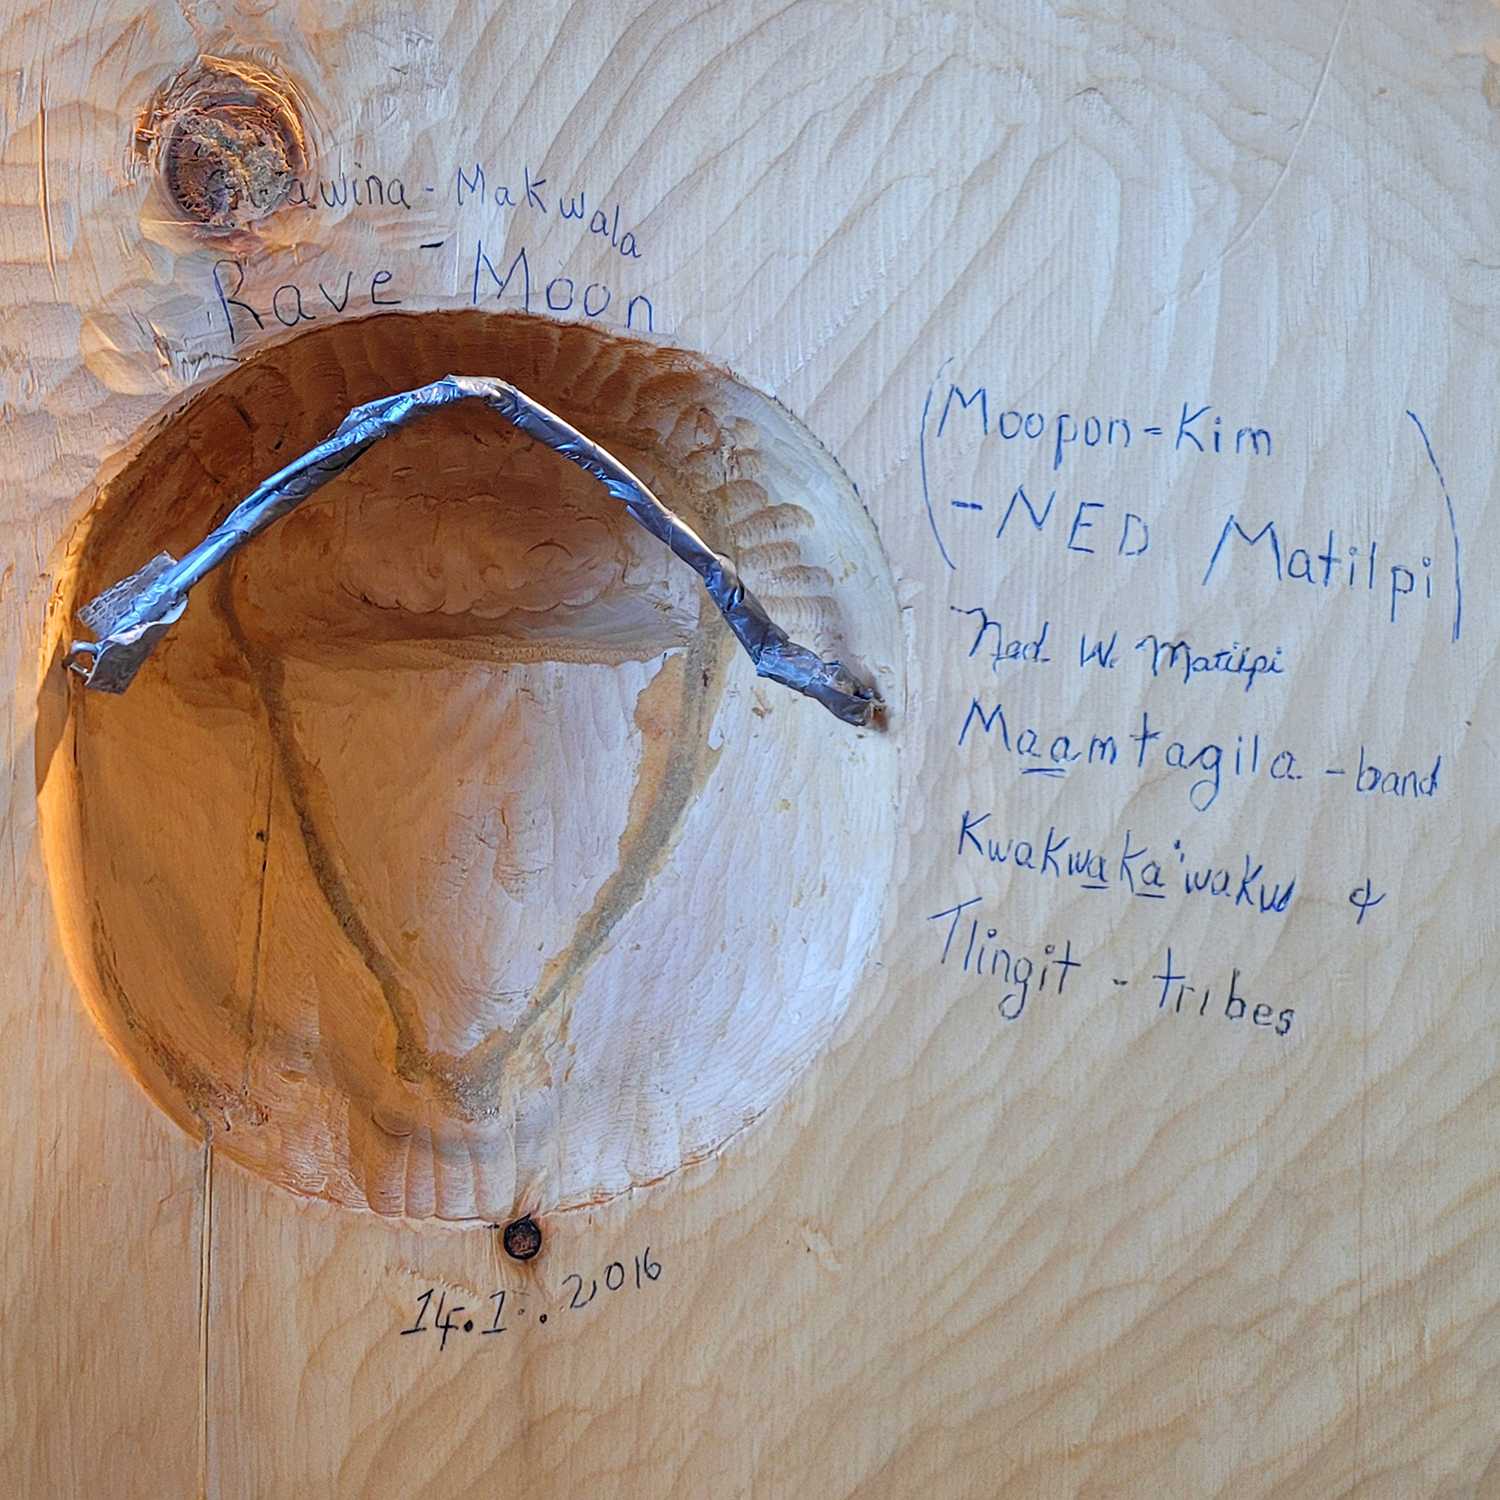 - Makwala
Rave - Moon
(Moopon - Kim
- NED Matilpi)
Ned. W. Matilpi
Ma̲a̲mtagila - band
Kwakwa̲ka̲'wakw &
Tlingit - tribes
14.1..2016